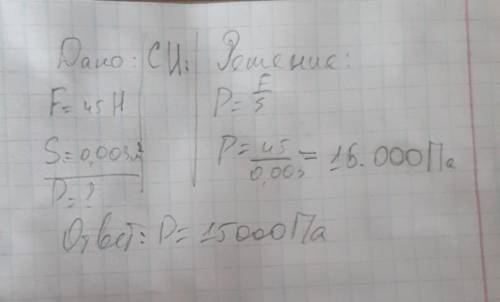 Дано: СИ: Решение:
F=45Н P=F/S
S=0,003м² P=45/0,003=15.000Па
P=?
Ответ: P=15000Па